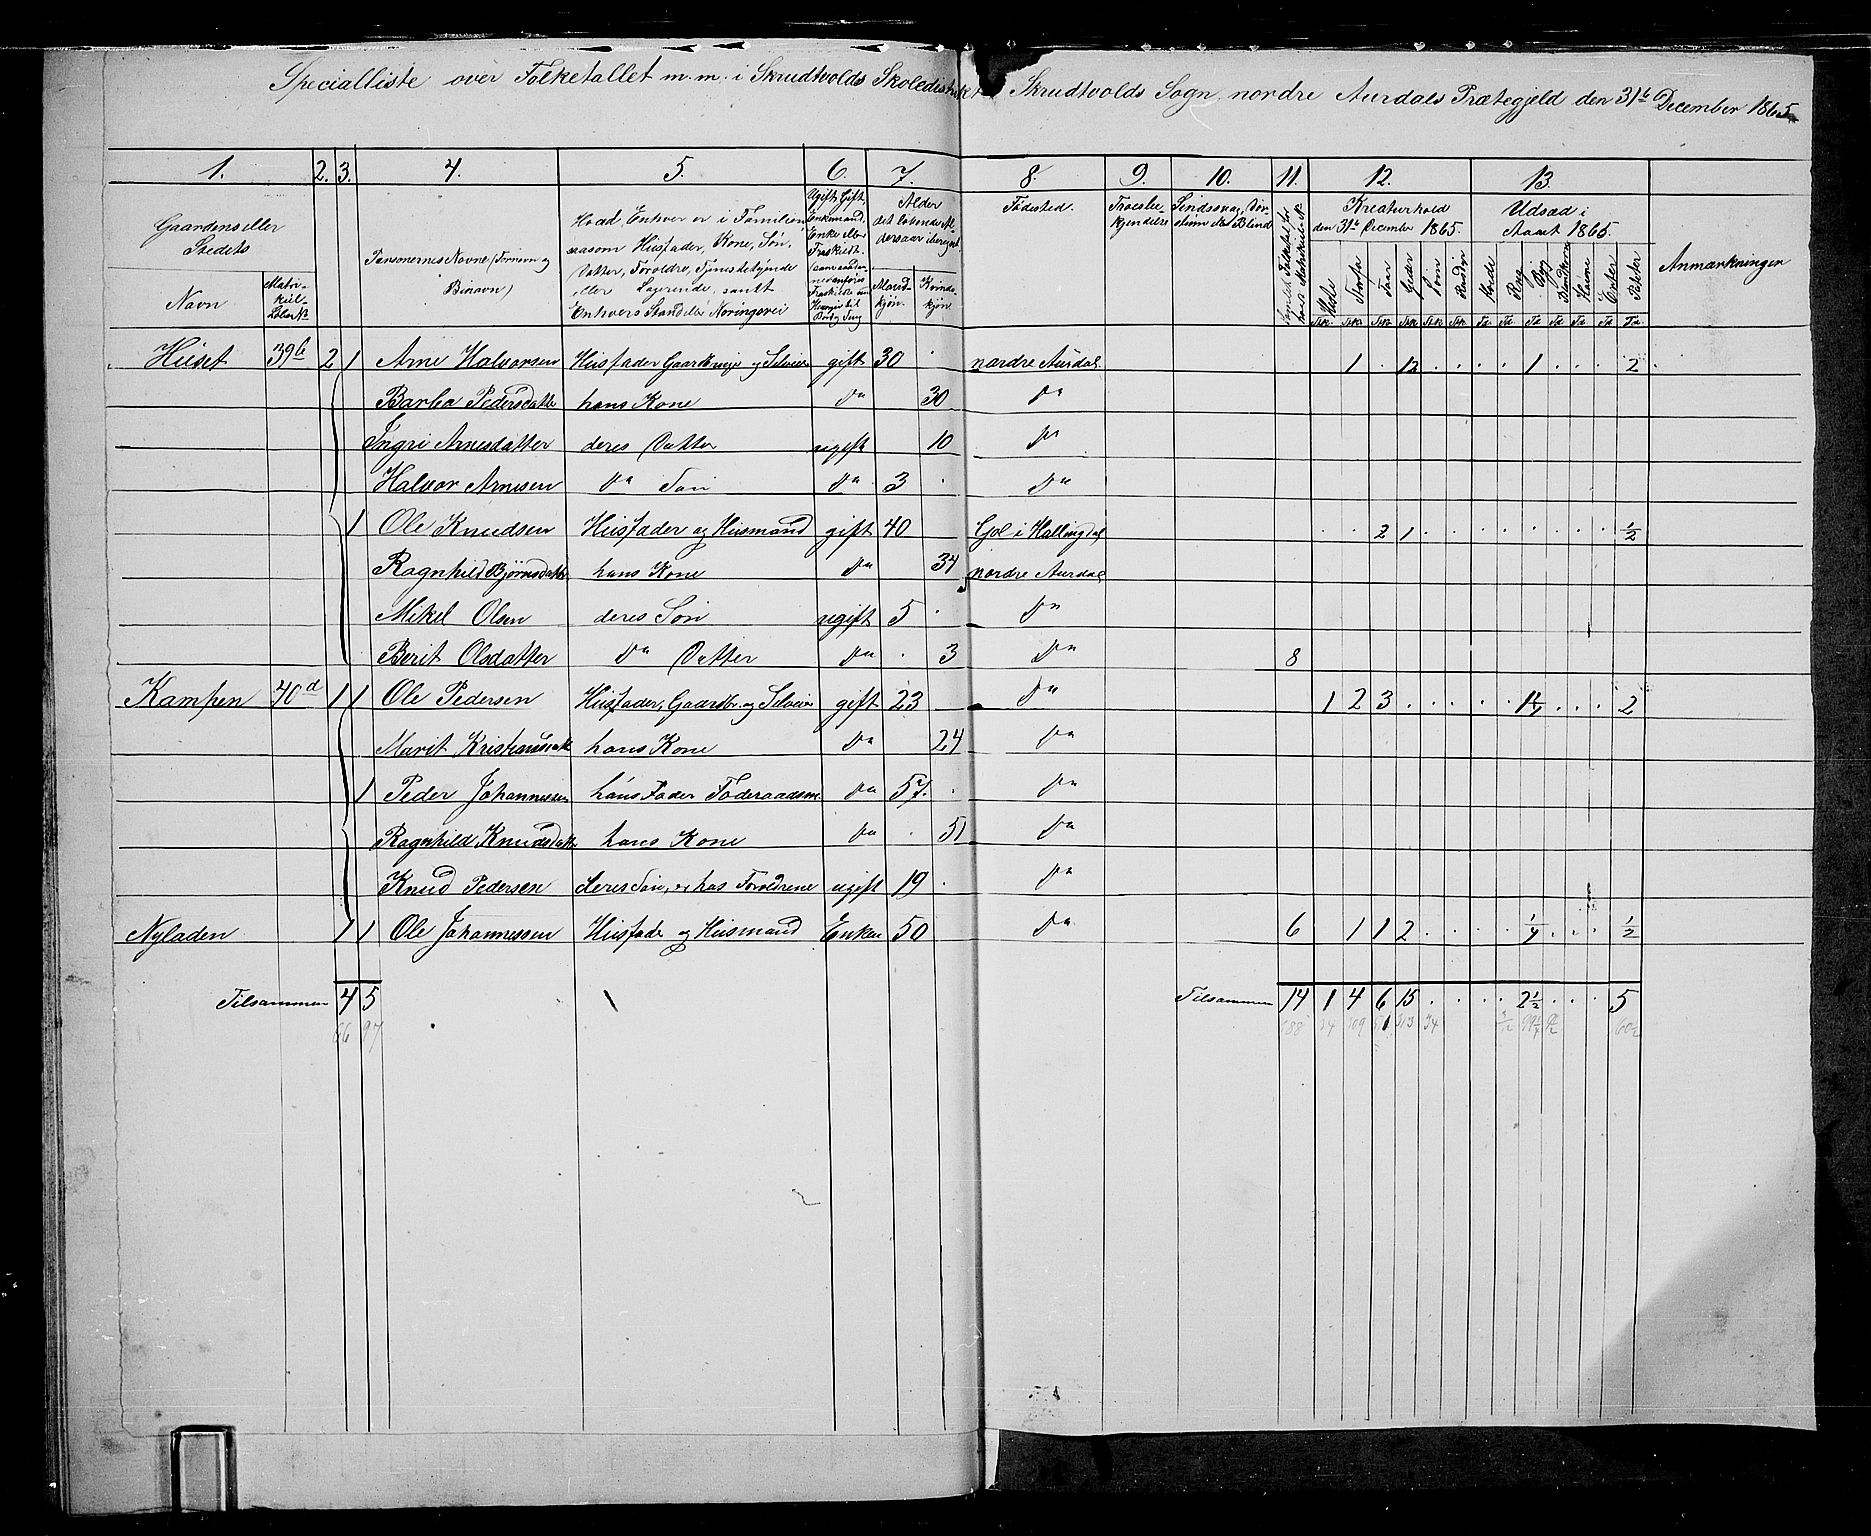 Specialliste over Folketallet m. m. i Skrudtvolds Skoledistrikt Skrudtvolds Sogn, nordre Aurdals Præstegjeld den 31te December 1865
1. 2. 3. 4. 5. 6. 7. 8. 9. 10. 11. 12. 13.
Gaardens eller Stedets
Navn
Matrikul-Løbe-No
Personernes Navne (Fornavn og Binavn)
Hvad Enhver er i Familien saasom Husfader, Kone, Søn, Datter, Forældre, Tjenestetyende eller Logerende, samt Enhvers Stand eller Næringsvei
Ugift, Gift, Enkemand, Enke eller Fraskilt
Alder det løbende Aldersaar iberegnet
Mandkjøn. Kvindekjøn
Fødested.
Troesbekjendelse
Sindssvag, Døvstum eller Blind
Kreaturhold den 31te December 1865.
Heste Storfæ Faar Geder Sviin Rensdyr
Udsæd i Aaret 1865.
Hvede Rug Byg Blandkorn Havre Erter Poteter
Anmærkninger
Huset 39b 2 1 Arne Halvorsen Husfader Gaardbruger og Selveier gift 30 nordre Aurdal 1 . 12 . . . . 1 . . . 2
Barbo Pedersdatter hans Kone do 30 do
Ingri Arnesdatter deres Datter ugift 10 do
Halvor Arnesen do Søn do 3 do
1 Ole Knudsen Husfader og Husmand gift 40 Gol i Hallingdal . . 2 1 . . . . . . . . 1/2
Ragnhild Bjørnsdatter hans Kone do 34 nordre Aurdal
Mikel Olsen deres Søn ugift 5 do
Berit Olsdatter do Datter do 3 do 8
Kampen 40d 1 1 Ole Pedersen Husfader, Gaardbr. og Selveier gift 23 do 1 2 3 . . . . . 1 1/4 . . . 2
Marit Kristiansdatt hans Kone do 24 do
1 Peder Johannessen hans Fader Føderaadsm. do 57 do
Ragnhild Knudsdatter hans Kone do 51 do
Knud Pedersen deres Søn, er hos Forældrene ugift 19 do
Nyladen 1 1 Ole Johannessen Husfader og Husmand Enkem 50 do 6 1 1 2 . . . . 1/4 . . . 1/2
Tilsammen 4 5 Tilsammen 14 1 4 6 15 . . . . 2 1/2 . . . 5
66 97